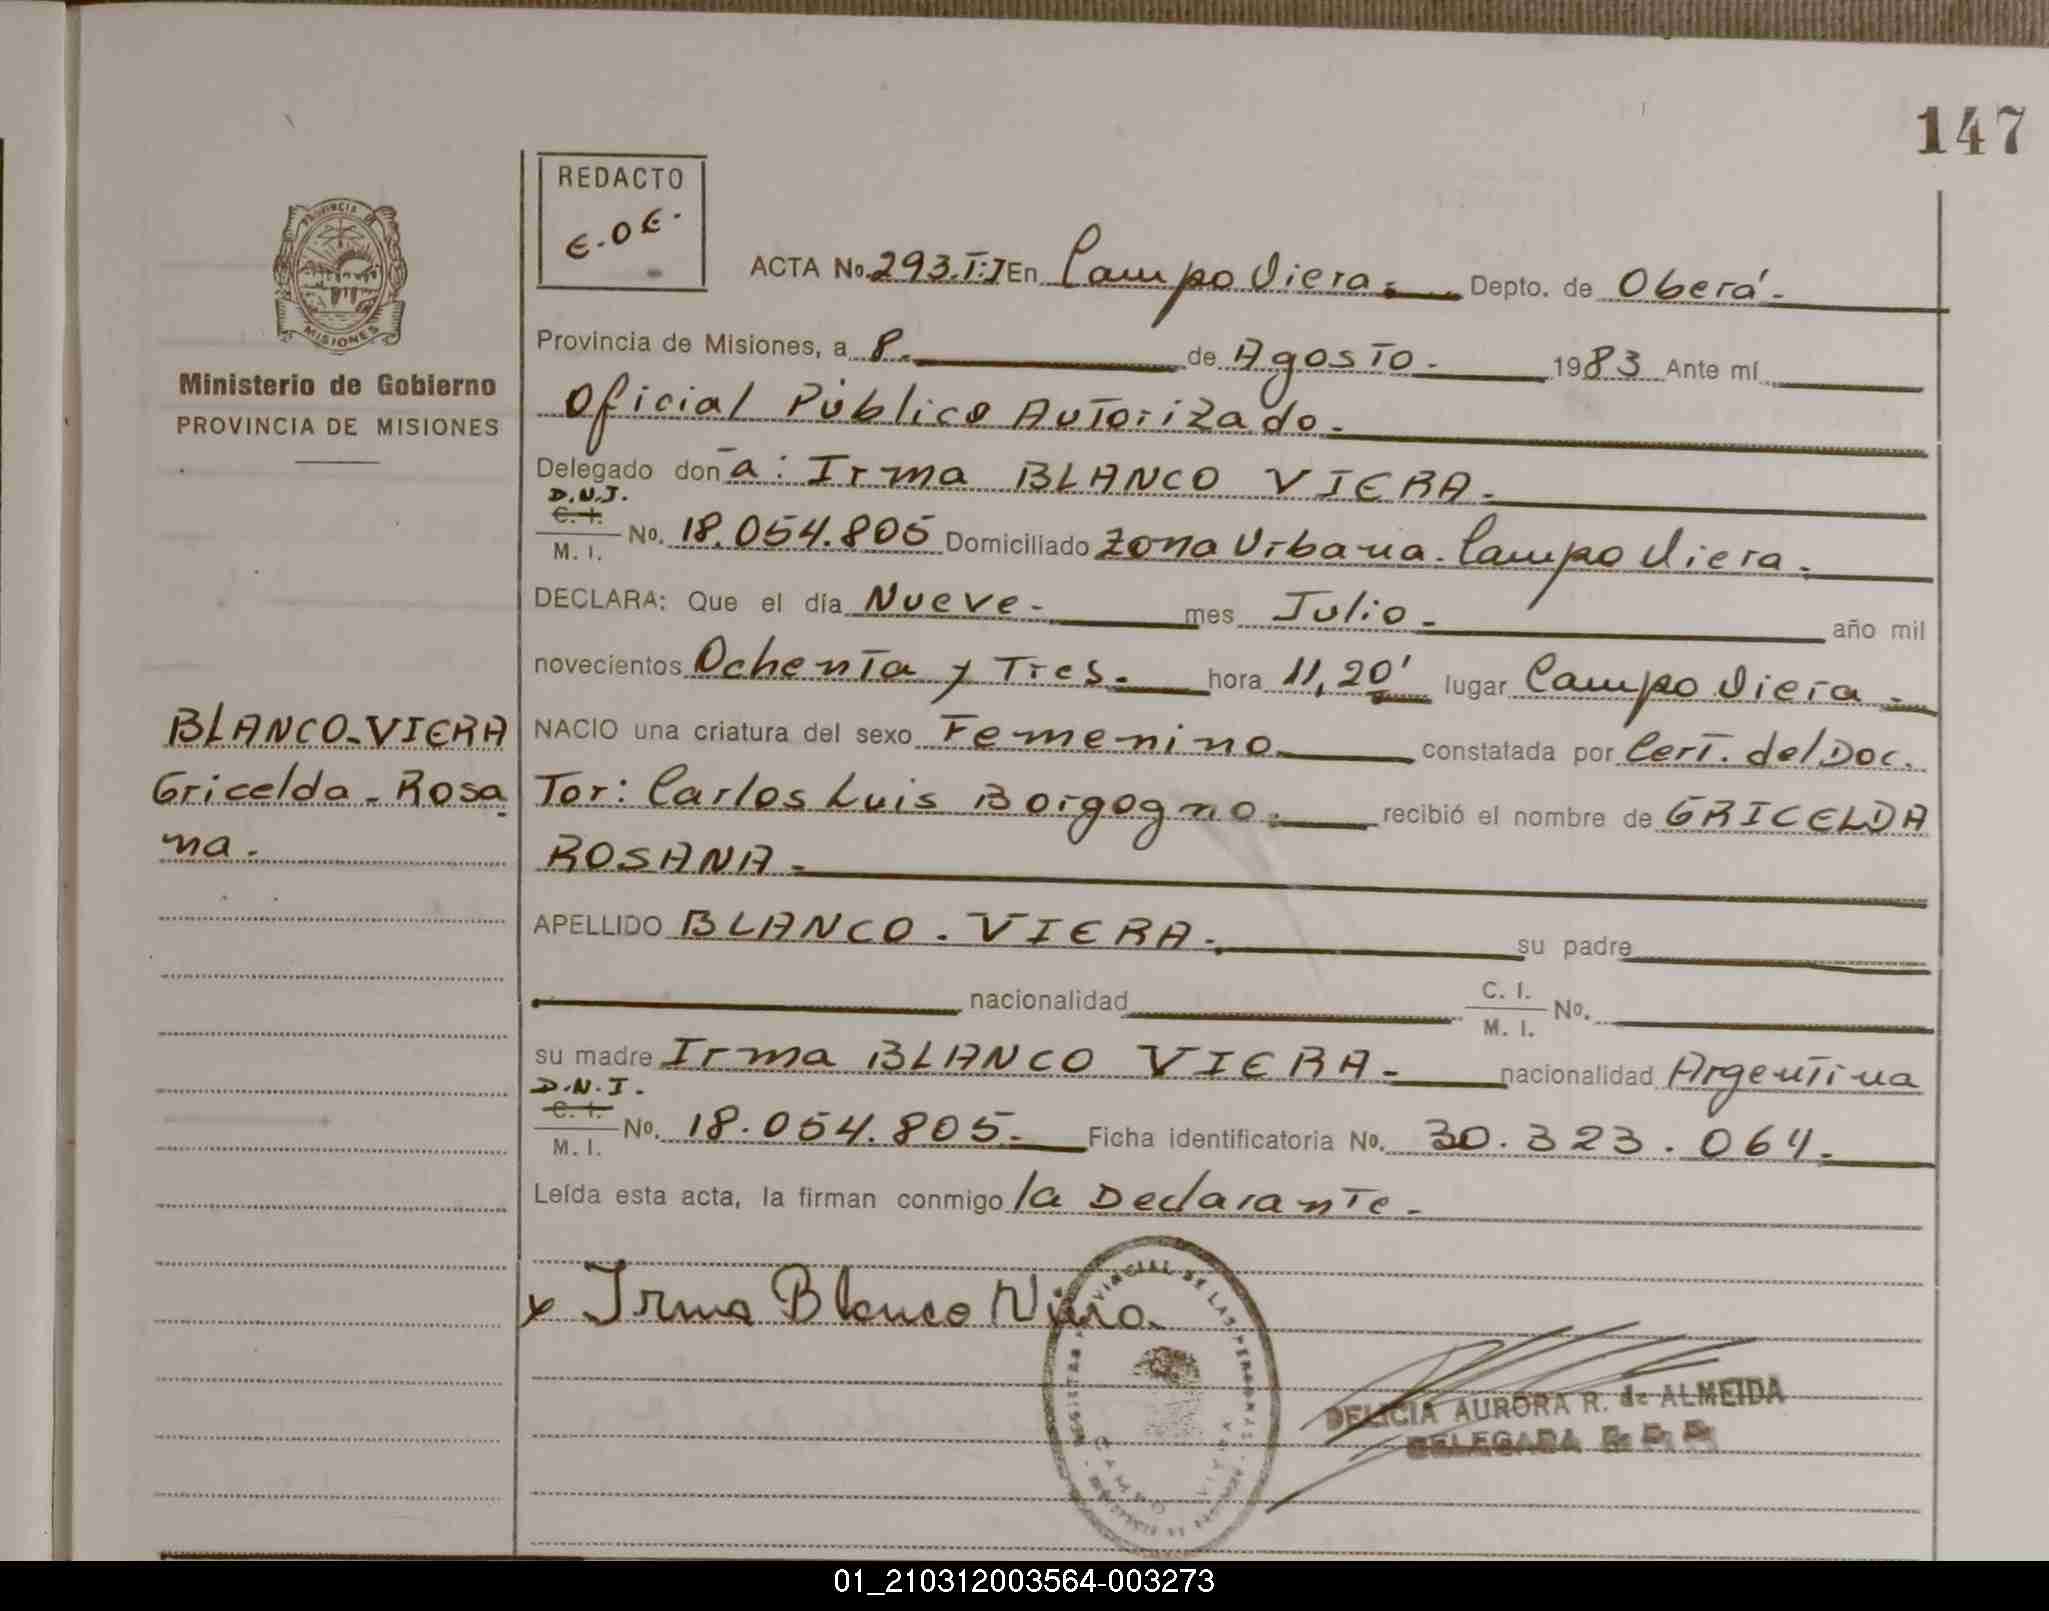 147
REDACTO
E.O.E.
PROVINCIA DE
MISIONES
Ministerio de Gobierno
PROVINCIA DE MISIONES
ACTA No. 293.T:I En Campo Viera.- Depto. de Oberá.-
Provincia de Misiones, a 8. de Agosto.- 1983 Ante mí
Oficial Público Autorizado.-
Delegado don a: Irma BLANCO VIERA.-
D.N.I.
C. I.
M. I. No. 18.054.805 Domiciliado Zona Urbana. Campo Viera.-
DECLARA: Que el día Nueve.- mes Julio.- año mil
novecientos Ochenta y Tres.- hora 11,20' lugar Campo Viera.-
BLANCO-VIERA
Gricelda-Rosa
na.-
NACIO una criatura del sexo Femenino constatada por Cert. del Doc.
Tor: Carlos Luis Borgogno.- recibió el nombre de GRICELDA
ROSANA.-
APELLIDO BLANCO-VIERA.- su padre
nacionalidad C. I.
M. I. No.
su madre Irma BLANCO VIERA.- nacionalidad Argentina
D.N.I.
C. I.
M. I. No. 18.054.805.- Ficha identificatoria No. 30.323.064.-
Leída esta acta, la firman conmigo la Declarante.-
x Irma Blanco Viera.
PROVINCIAL DE LAS PERSONAS
CAMPO VIERA
DELICIA AURORA R. de ALMEIDA
DELEGADA
01_210312003564-003273